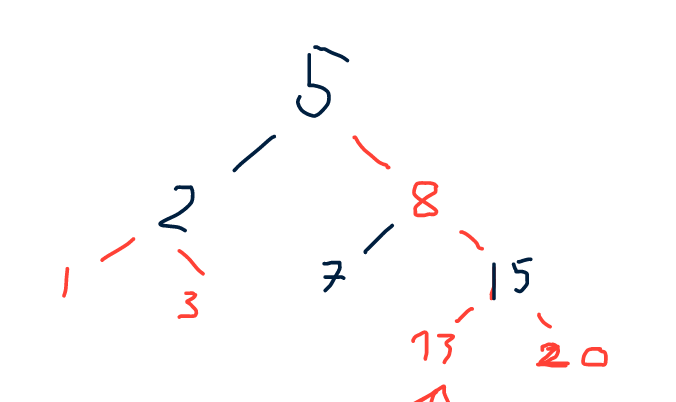 5
2 8
1 3 7 15
13 20